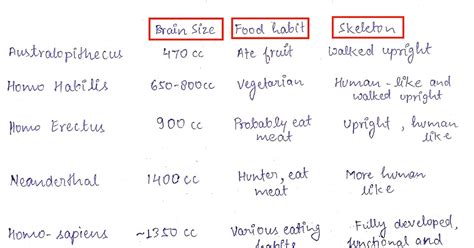 Brain Size Food habit Skeleton
Australopithecus 470 cc Ate fruit Walked upright
Homo Habilis 650-800cc Vegetarian Human-like and
walked upright
Homo Erectus 900 cc Probably eat Upright, human
meat like
Neanderthal 1400 cc Hunter, eat More human
meat like
Homo-sapiens ~1350 cc Various eating Fully developed,
habits functional and